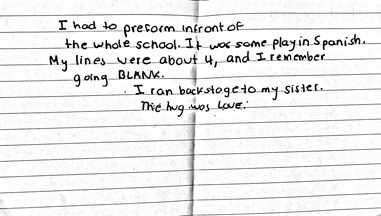 I had to preform infront of
the whole school. It was some play in Spanish.
My lines were about 4, and I remember
going BLANK.
I ran backstage to my sister.
The hug was Love.